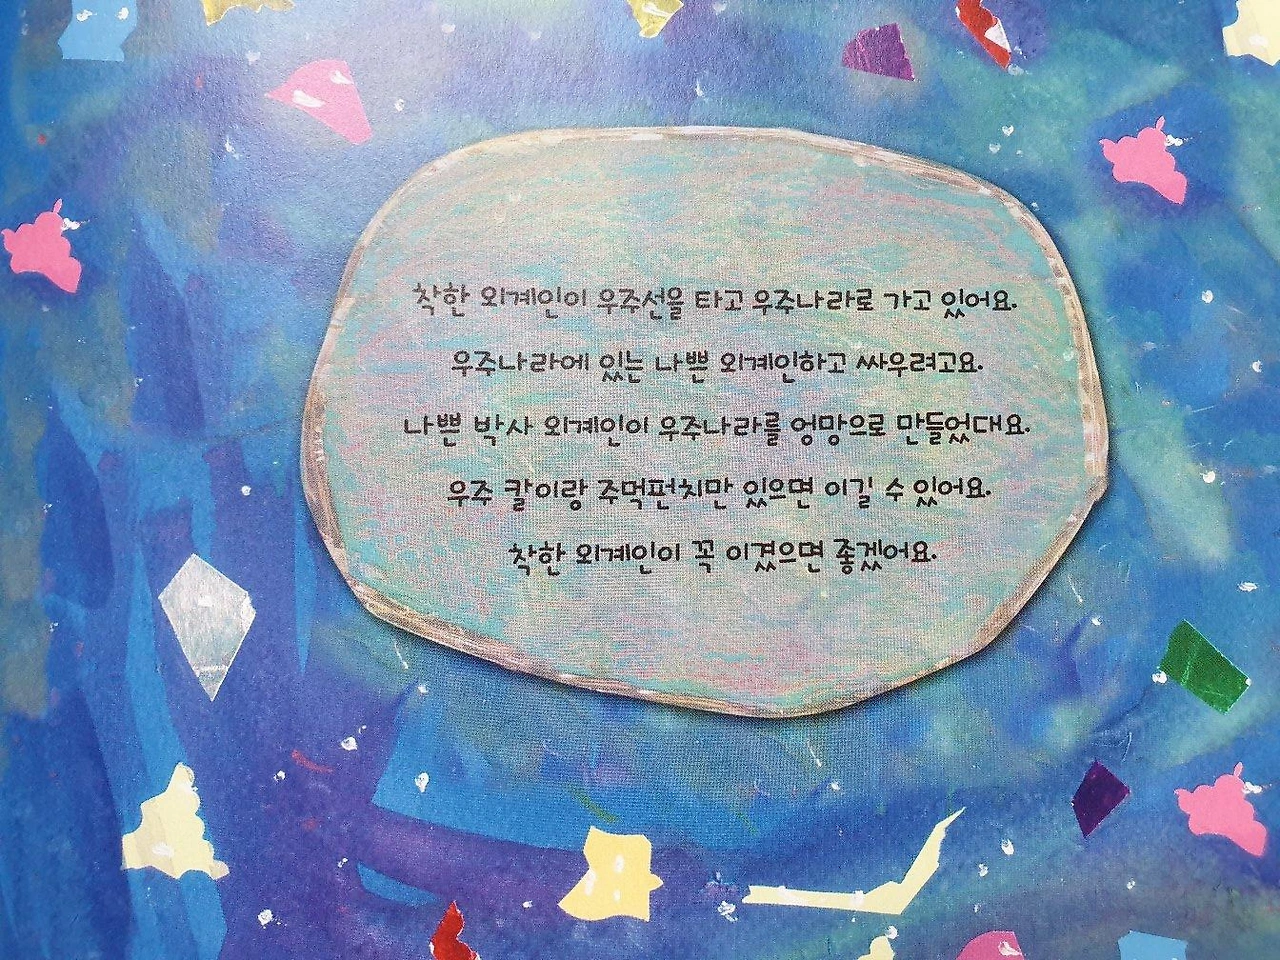 착한 외계인이 우주선을 타고 우주나라로 가고 있어요.
우주나라에 있는 나쁜 외계인하고 싸우려고요.
나쁜 박사 외계인이 우주나라를 엉망으로 만들었대요.
우주 칼이랑 주먹펀치만 있으면 이길 수 있어요.
착한 외계인이 꼭 이겼으면 좋겠어요.